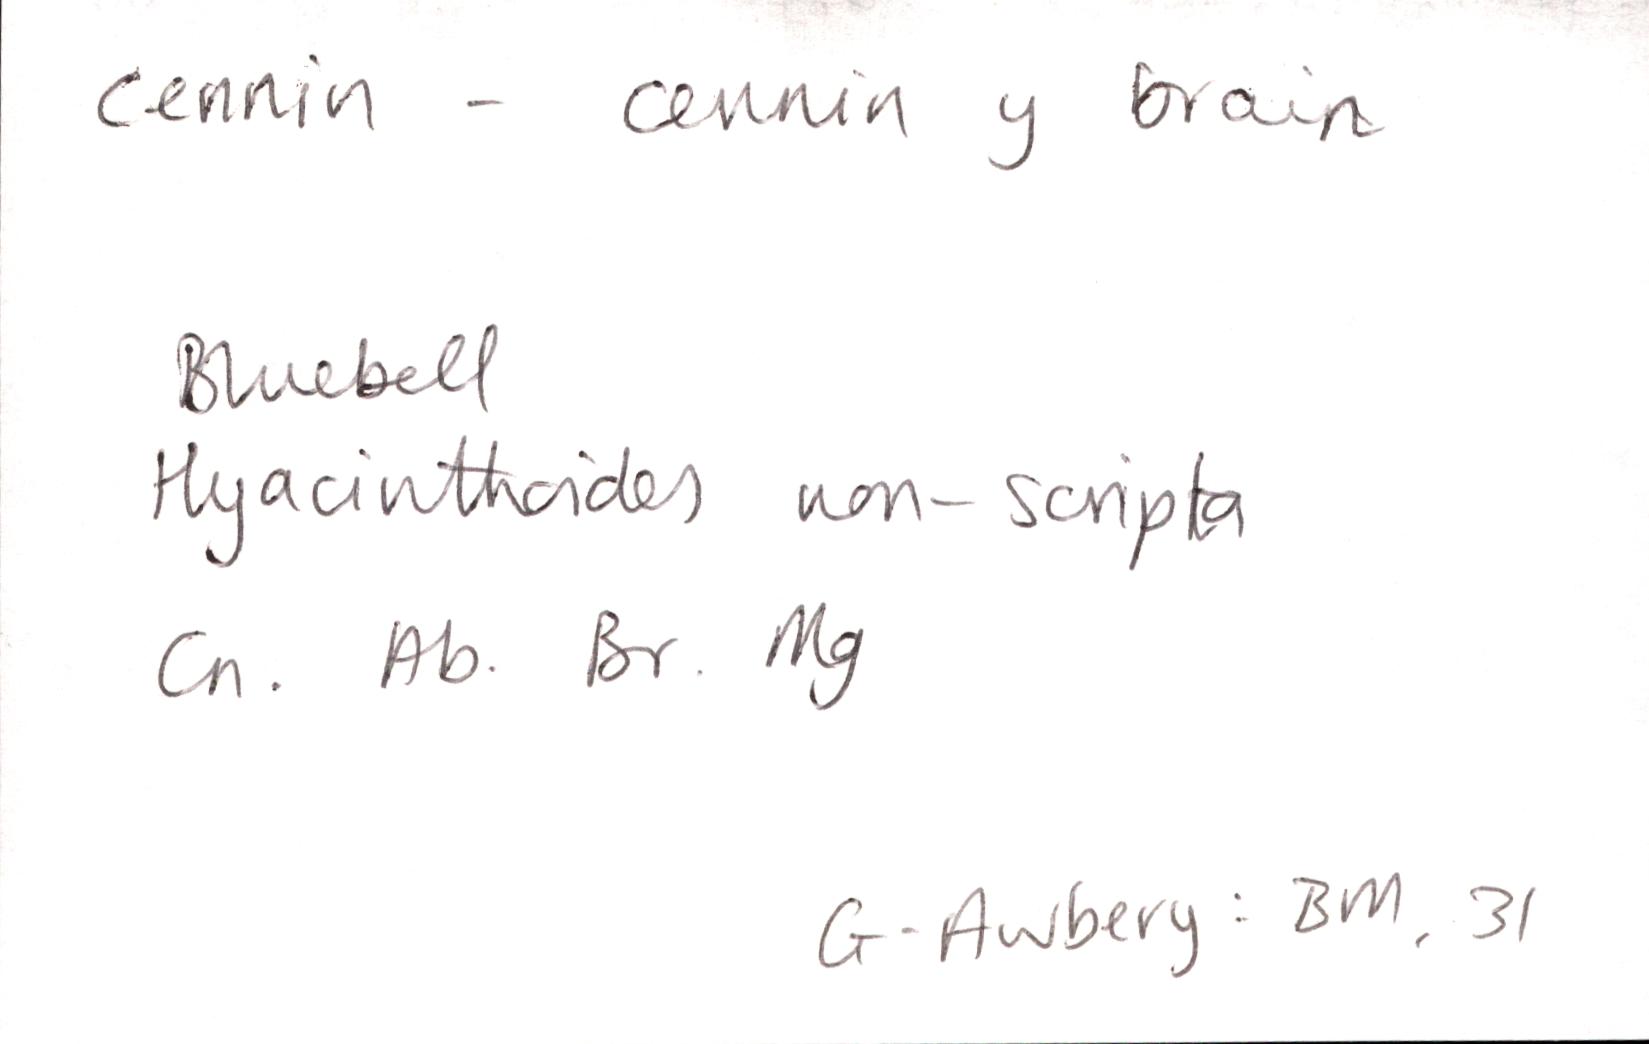 cennin - cennin y brain
Bluebell
Hyacinthoides non-scripta
Cn. Ab. Br. Mg
G. Awbery: BM, 31